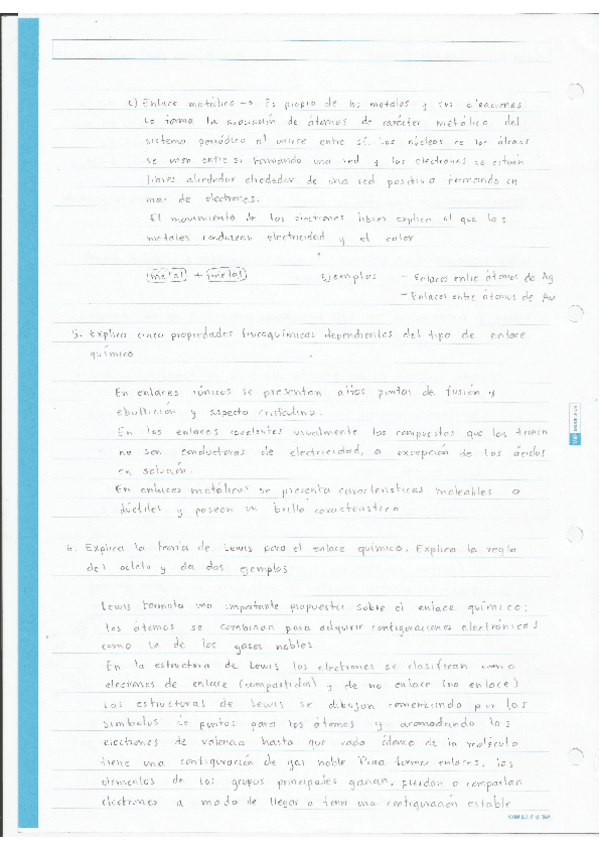 c) Enlace metálico → Es propio de los metales y sus aleaciones
Lo forma la de átomos de carácter metálico del
sistema periódico al unirse entre sí. Los núcleos de los átomos
se unen entre si formando una red y los electrones se sitúan
libres alrededor alrededor de una red positiva formando un
mar de electrones.
El movimiento de los electrones libres explica el que los
metales conduzcan electricidad y el calor
metal + metal Ejemplos - Enlaces entre átomos de Ag
- Enlaces entre átomos de Au
5. Explica cinco propiedades fisicoquímicas dependientes del tipo de enlace
químico
En enlaces iónicos se presentan altos puntos de fusión y
ebullición y aspecto cristalino.
En los enlaces covalentes usualmente los compuestos que los
no son conductores de electricidad, a excepción de los ácidos
en solución.
En enlaces metálicos se presenta características maleables o
dúctiles y poseen un brillo característico
6. Explica la teoría de Lewis para el enlace químico. Explica la regla
del octeto y da dos ejemplos
Lewis formula una importante propuesta sobre el enlace químico:
los átomos se combinan para adquirir configuraciones electrónicas
como la de los gases nobles.
En la estructura de Lewis los electrones se clasifican como
electrones de enlace (compartidos) y de no enlace (no enlace)
Las estructuras de Lewis se dibujan comenzando por los
símbolos de puntos para los átomos y acomodando los
electrones de valencia hasta que cada átomo de la molécula
tiene una configuración de gas noble Para formar enlaces, los
elementos de los grupos principales ganan, pierdan o compartan
electrones a modo de llegar a tener una configuración estable